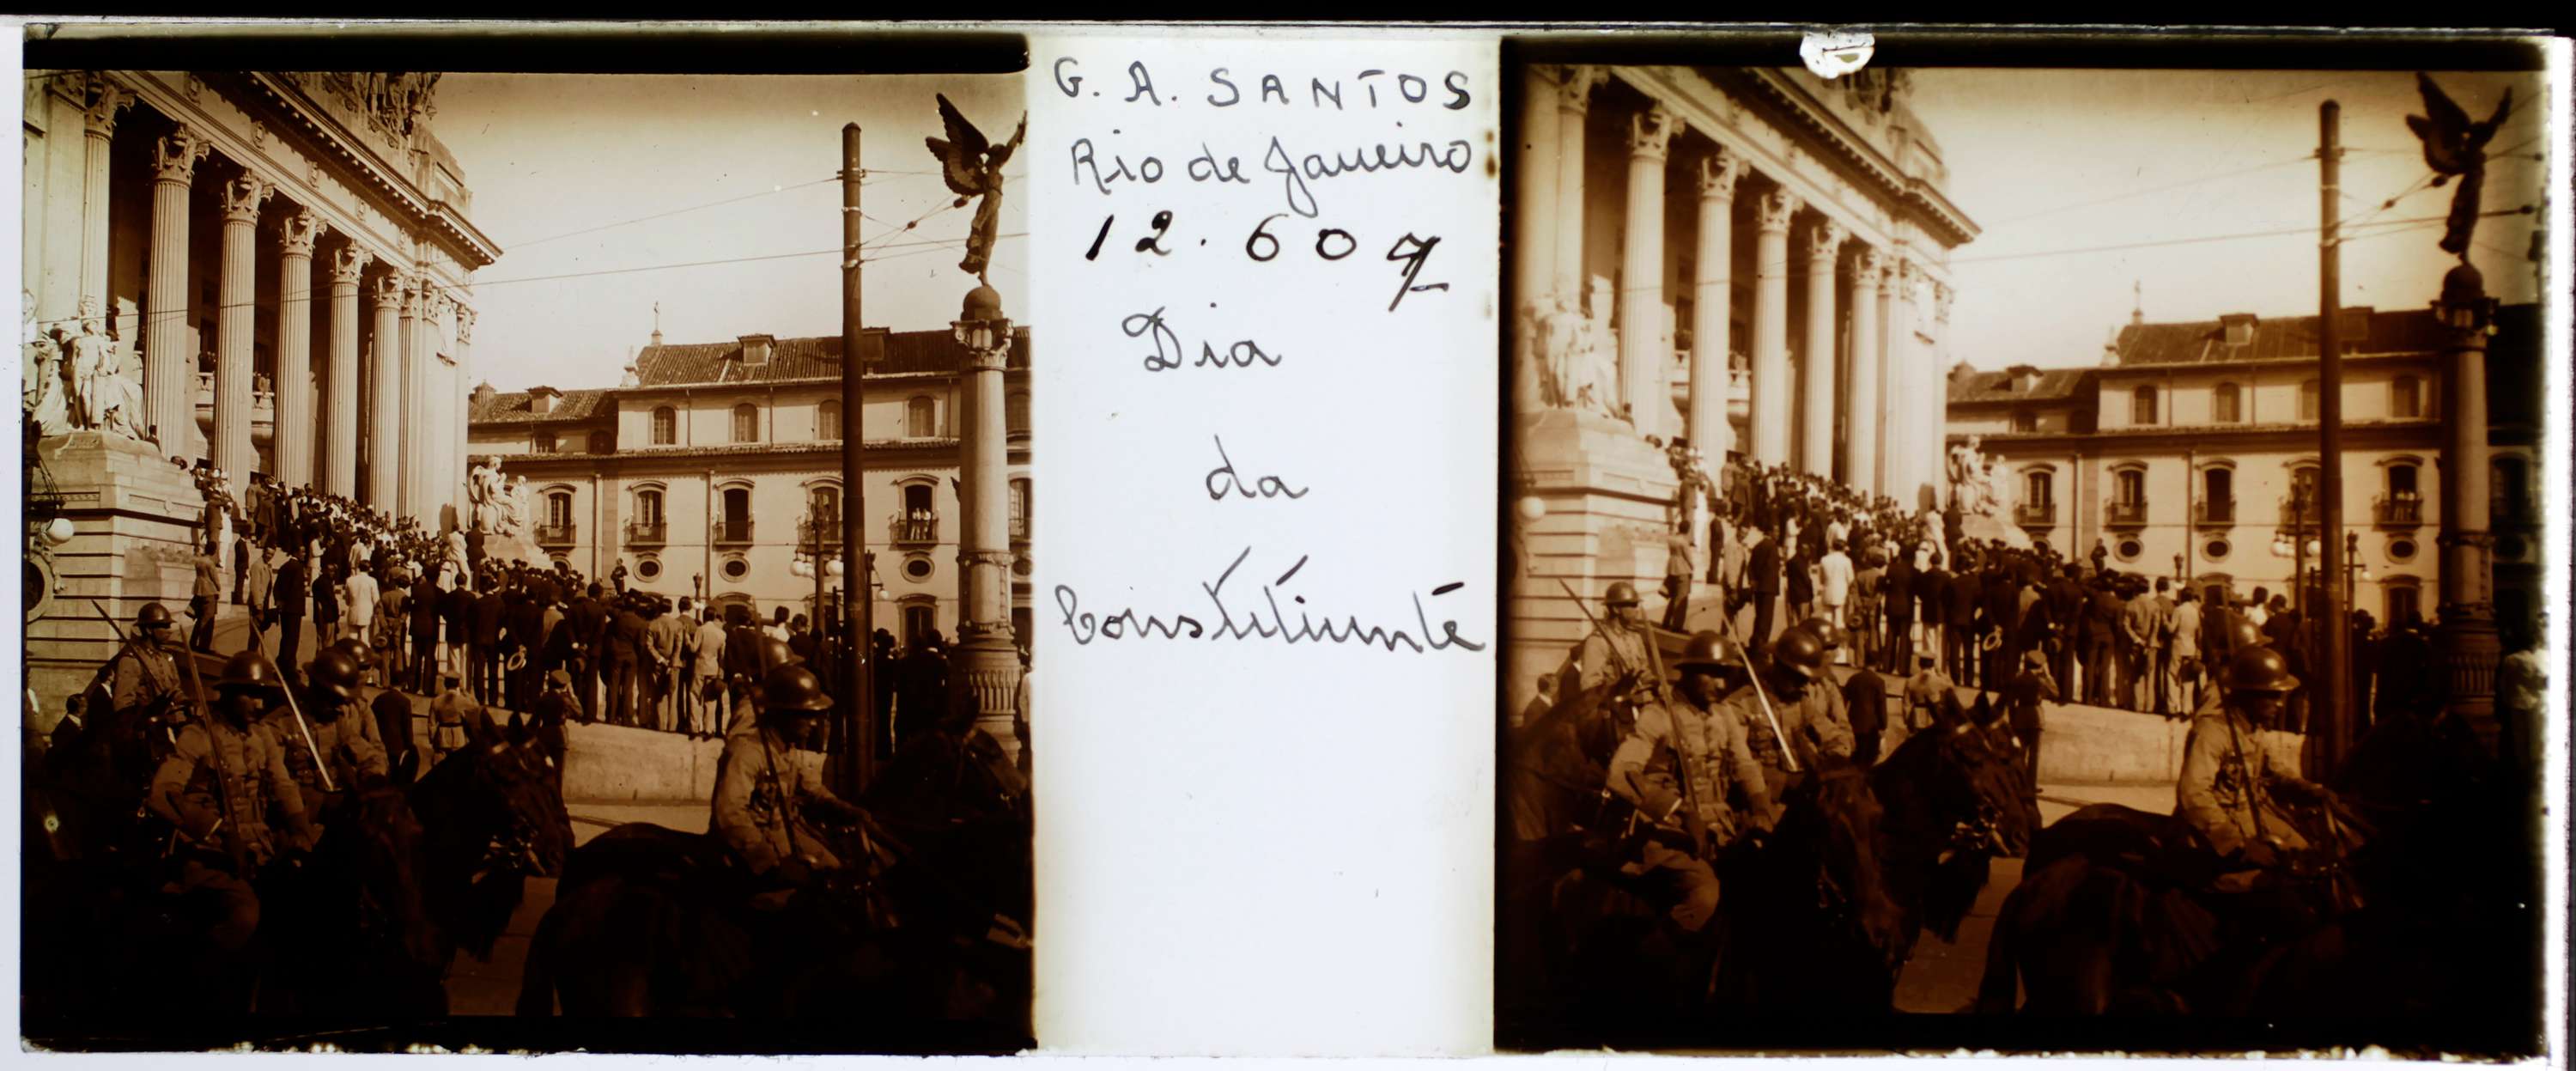 G. A. SANTOS
Rio de Janeiro
12.607
Dia
da
Constituinte